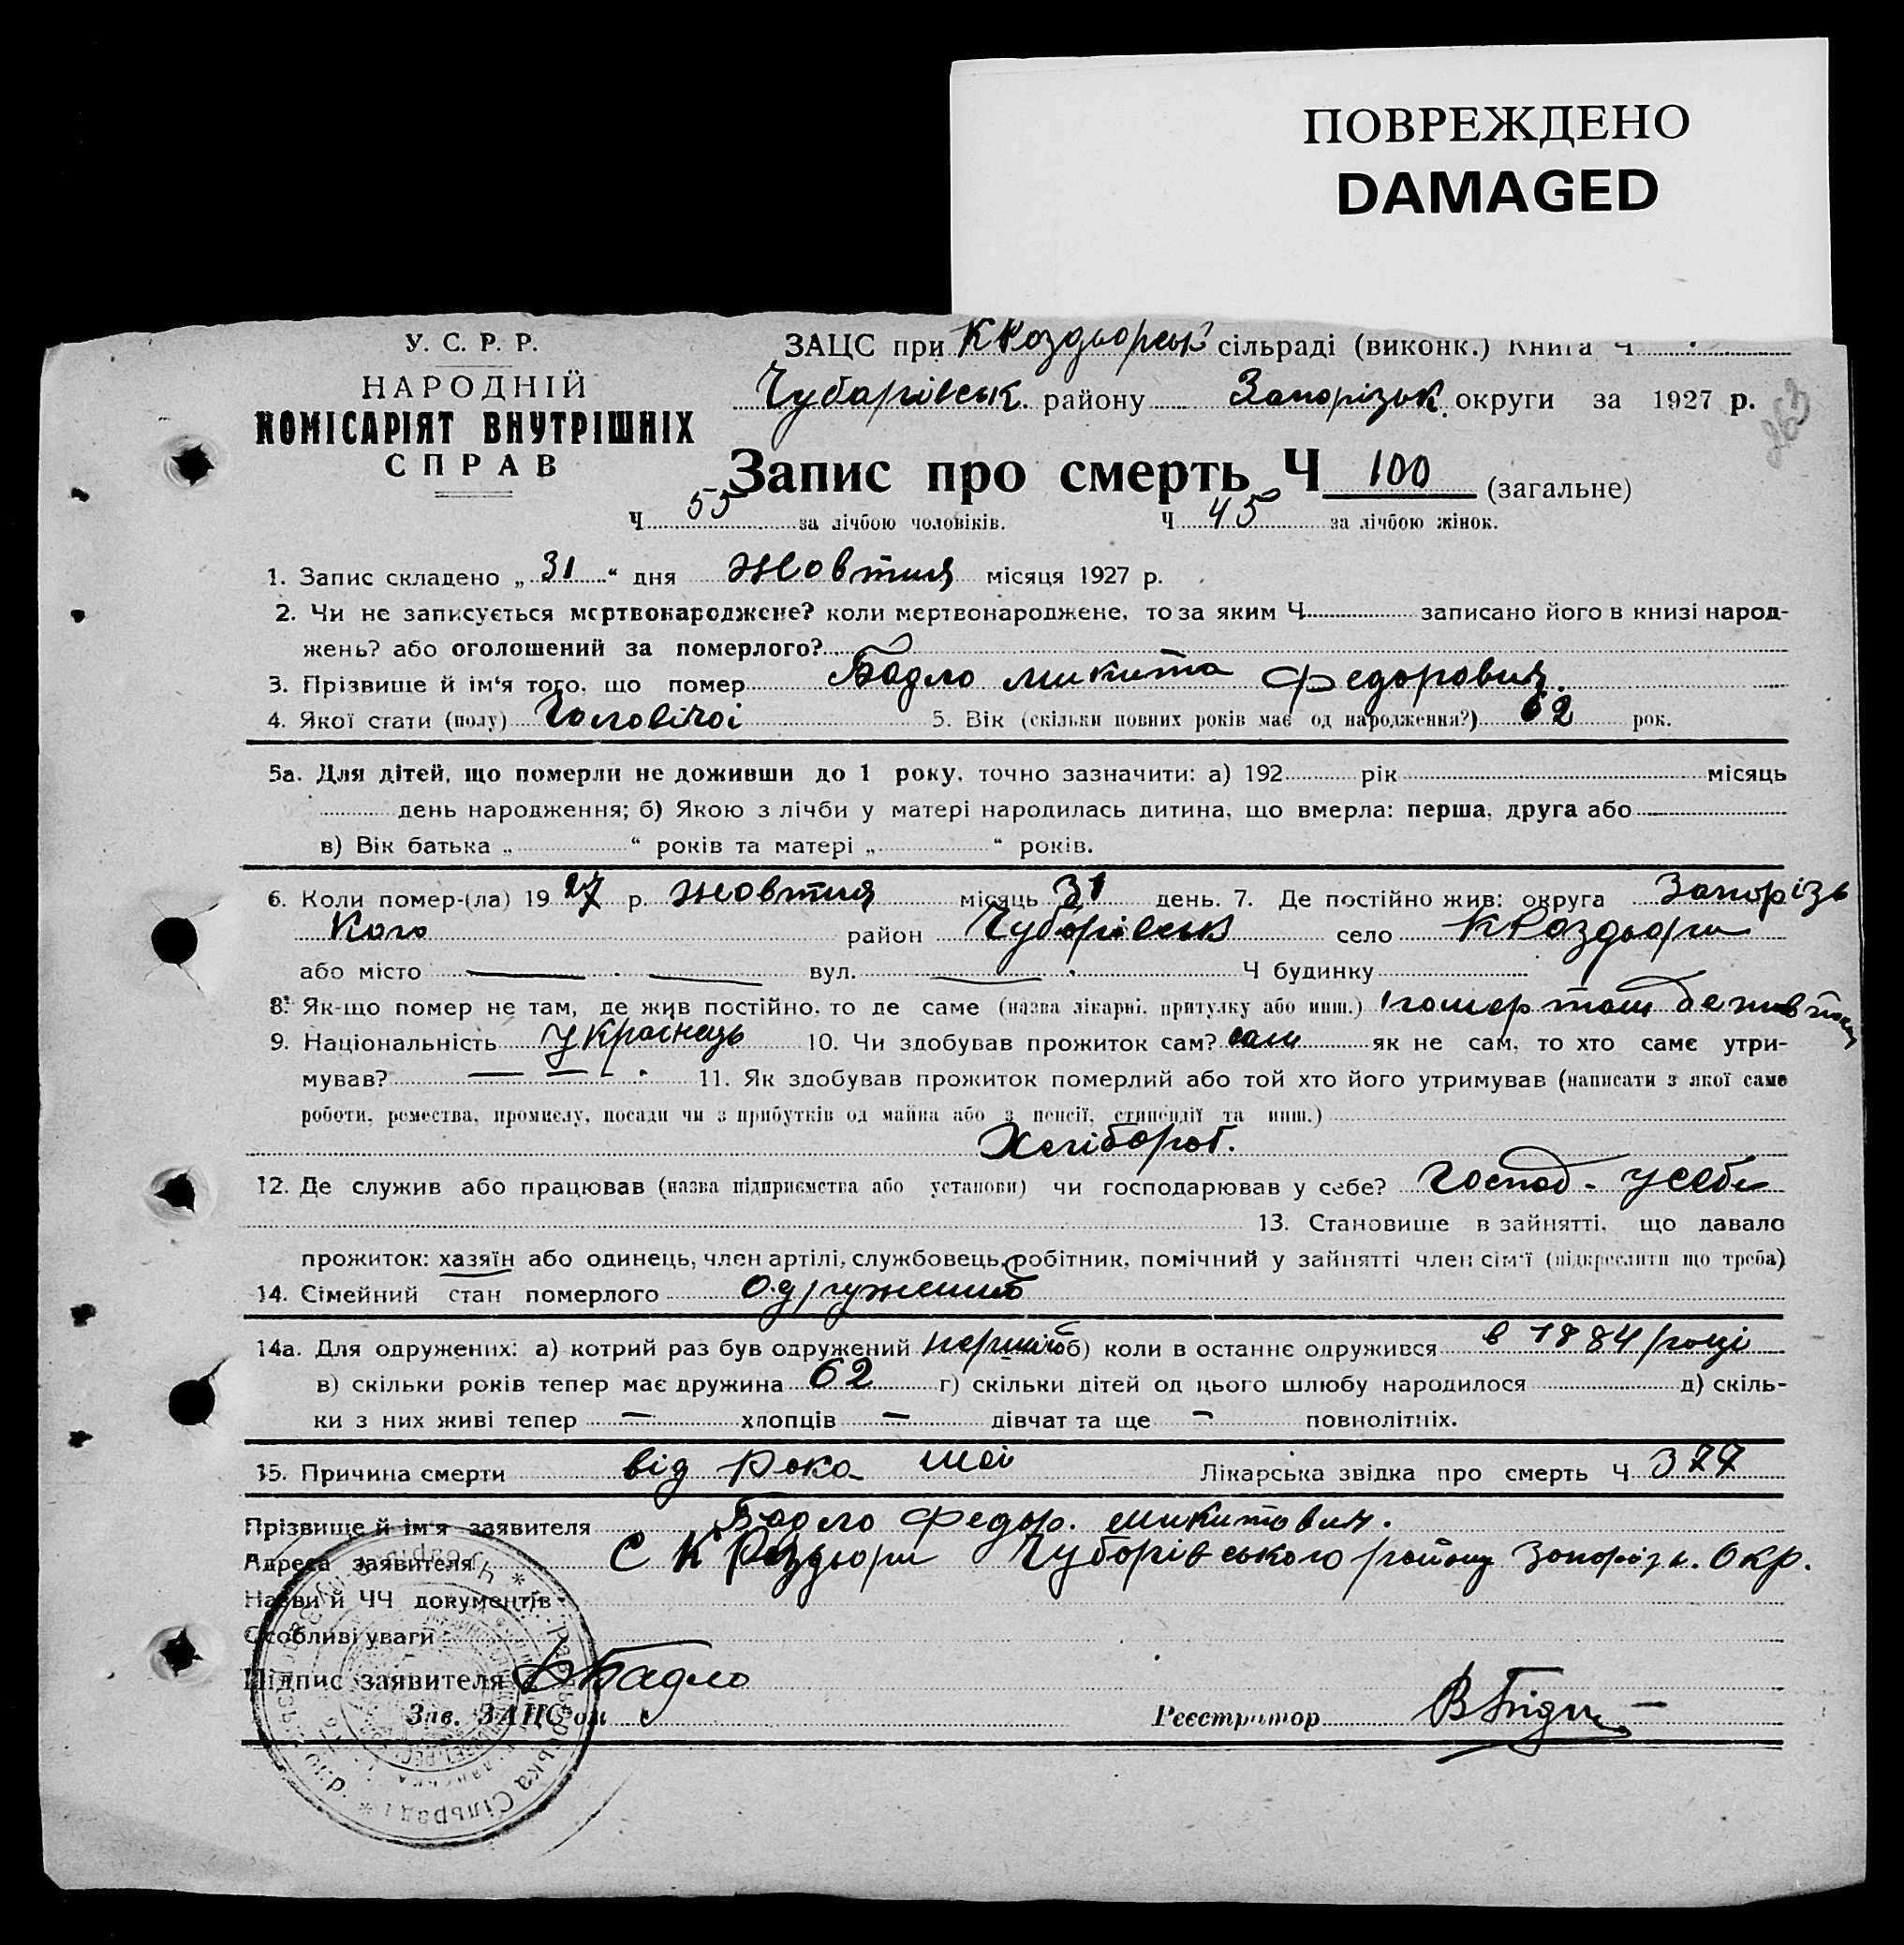 ПОВРЕЖДЕНО
DAMAGED
У. С. Р. Р.
НАРОДНІЙ
КОМІСАРІЯТ ВНУТРІШНІХ
СПРАВ
ЗАЦС при К Роздьорськ сільраді (виконк.) Книга Ч
Чубарівськ. району Запорізьк. округи за 1927 р.
Запис про смерть Ч 100 (загальне)
Ч 55 за лічбою чоловіків. Ч 45 за лічбою жінок.
1. Запис складено „ 31 “ дня жовтня місяця 1927 р.
2. Чи не записується мертвонароджене? коли мертвонароджене, то за яким Ч записано його в книзі народ-
жень? або оголошений за померлого?
3. Прізвище й ім'я того, що помер Бадло Микита Федорович.
4. Якої стати (полу) Чоловічої 5. Вік (скільки повних років має од народження?) 62 рок.
5а. Для дітей, що померли не доживши до 1 року, точно зазначити: а) 192 рік місяць
день народження; б) Якою з лічби у матері народилась дитина, що вмерла: перша, друга або
в) Вік батька „ “ років та матері „ “ років.
6. Коли помер-(ла) 19 27 р. жовтня місяць 31 день. 7. Де постійно жив: округа Запорізь
кого район Чубарівськ село К Роздьори
або місто — вул. — Ч будинку
8. Як-що помер не там, де жив постійно, то де саме (назва лікарні, притулку або инш.) помер там де жив
9. Національність Українець 10. Чи здобував прожиток сам? сам як не сам, то хто саме утри-
мував? — — — 11. Як здобував прожиток померлий або той хто його утримував (написати з якої саме
роботи, ремества, промислу, посади чи з прибутків од майна або з пенсії, стипендії та инш.)
Хлібороб.
12. Де служив або працював (назва підприємства або установи) чи господарював у себе? Господ. у себе
13. Становище в зайнятті, що давало
прожиток: хазяїн або одинець, член артілі, службовець, робітник, помічний у зайнятті член сім'ї (підкреслити що треба)
14. Сімейний стан померлого одружений
14а. Для одружених: а) котрий раз був одружений перший б) коли в останнє одружився в 1884 році
в) скільки років тепер має дружина 62 г) скільки дітей од цього шлюбу народилося д) скіль-
ки з них живі тепер — хлопців — дівчат та ще — повнолітніх.
15. Причина смерти від рака Лікарська звідка про смерть Ч 377
Прізвище й ім'я заявителя Бадло Федор. Микитович.
Адреса заявителя С К Роздьори Чубарівського району Запорізь. Окр.
Назви й ЧЧ документів
Особливі уваги
Підпис заявителя Бадло
Зав. ЗАЦС'ом Реєстратор